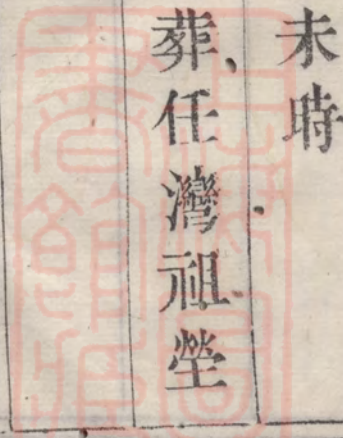 未時
葬任灣祖塋